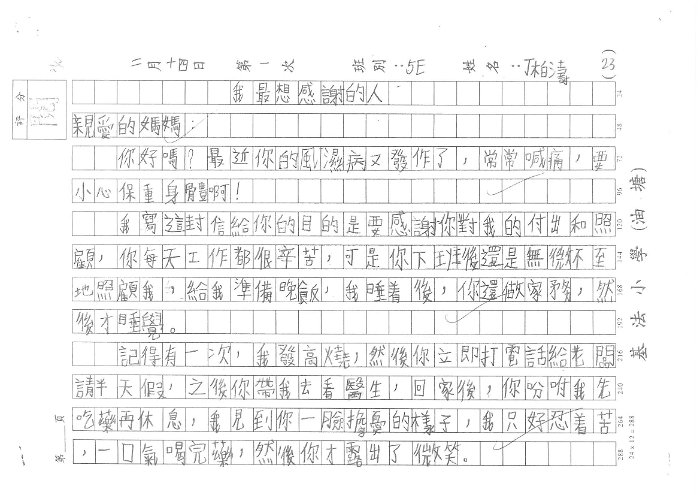 十一月十四日　第1次　班別：5E　姓名：丁柏濤　(23)
我最想感謝的人
親愛的媽媽：
你好嗎？最近你的風濕病又發作了，常常喊痛，要
小心保重身體啊！
我寫這封信給你的目的是要感謝你對我的付出和照
顧，你每天工作都很辛苦，可是你下班後還是無微不至
地照顧我，給我準備晚飯，我睡着後，你還做家務，然
後才睡覺。
記得有一次，我發高燒，然後你立即打電話給老闆
請半天假，之後你帶我去看醫生，回家後，你吩咐我先
吃藥再休息，我見到你一臉擔憂的樣子，我只好忍着苦
，一口氣喝完藥，然後你才露出了微笑。
分
部
第　頁
基法小學(油塘)
24
48
72
96
120
144
168
192
216
240
264
288
24 x 12 = 288